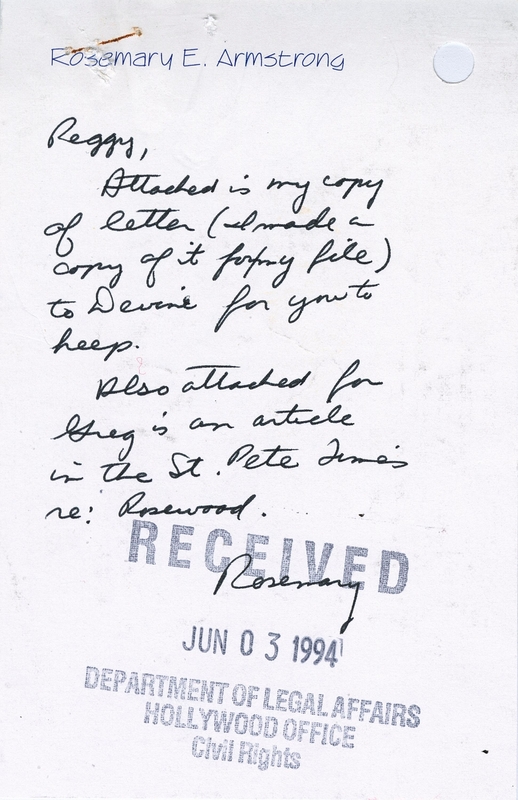 Rosemary E. Armstrong
Peggy,
Attached is my copy
of letter (I made a
copy of it for my file)
to Devine for you to
keep.
Also attached for
Greg is an article
in the St. Pete Times
re: Rosewood.
RECEIVED
Rosemary
JUN 03 1994
DEPARTMENT OF LEGAL AFFAIRS
HOLLYWOOD OFFICE
Civil Rights